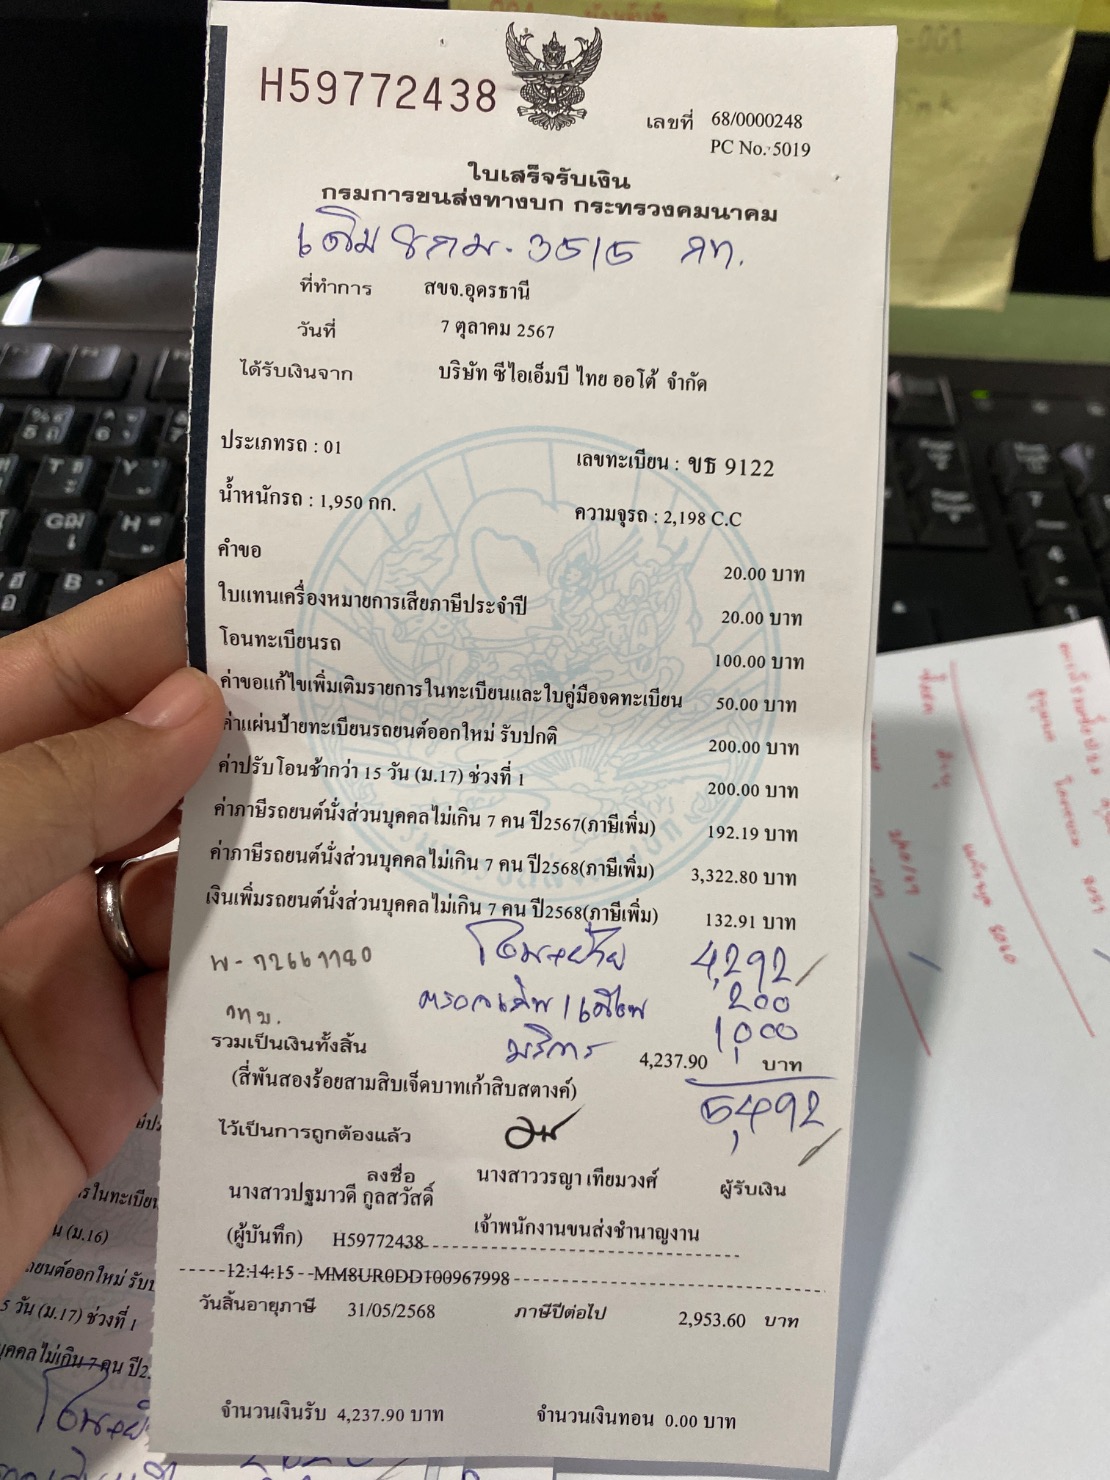 H59772438
เลขที่ 68/0000248
PC No. 5019
ใบเสร็จรับเงิน
กรมการขนส่งทางบก กระทรวงคมนาคม
เดิม 8กม. 3515 กท.
ที่ทำการ สขจ.อุดรธานี
วันที่ 7 ตุลาคม 2567
ได้รับเงินจาก บริษัท ซีไอเอ็มบี ไทย ออโต้ จำกัด
ประเภทรถ : 01 เลขทะเบียน : ขธ 9122
น้ำหนักรถ : 1,950 กก. ความจุรถ : 2,198 C.C
คำขอ 20.00 บาท
ใบแทนเครื่องหมายการเสียภาษีประจำปี 20.00 บาท
โอนทะเบียนรถ 100.00 บาท
ค่าขอแก้ไขเพิ่มเติมรายการในทะเบียนและใบคู่มือจดทะเบียน 50.00 บาท
ค่าแผ่นป้ายทะเบียนรถยนต์ออกใหม่ รับปกติ 200.00 บาท
ค่าปรับโอนช้ากว่า 15 วัน (ม.17) ช่วงที่ 1 200.00 บาท
ค่าภาษีรถยนต์นั่งส่วนบุคคลไม่เกิน 7 คน ปี2567(ภาษีเพิ่ม) 192.19 บาท
ค่าภาษีรถยนต์นั่งส่วนบุคคลไม่เกิน 7 คน ปี2568(ภาษีเพิ่ม) 3,322.80 บาท
เงินเพิ่มรถยนต์นั่งส่วนบุคคลไม่เกิน 7 คน ปี2568(ภาษีเพิ่ม) 132.91 บาท
โอน+ย้าย 4,292
200
บริการ 1,000
รวมเป็นเงินทั้งสิ้น 4,237.90 บาท
(สี่พันสองร้อยสามสิบเจ็ดบาทเก้าสิบสตางค์) 5,492
ไว้เป็นการถูกต้องแล้ว
ลงชื่อ นางสาววรญา เทียมวงศ์ ผู้รับเงิน
นางสาวปฐมาวดี กูลสวัสดิ์
เจ้าพนักงานขนส่งชำนาญงาน
(ผู้บันทึก) H59772438
12:14:15 MM8UR0DD100967998
วันสิ้นอายุภาษี 31/05/2568 ภาษีปีต่อไป 2,953.60 บาท
จำนวนเงินรับ 4,237.90 บาท จำนวนเงินทอน 0.00 บาท